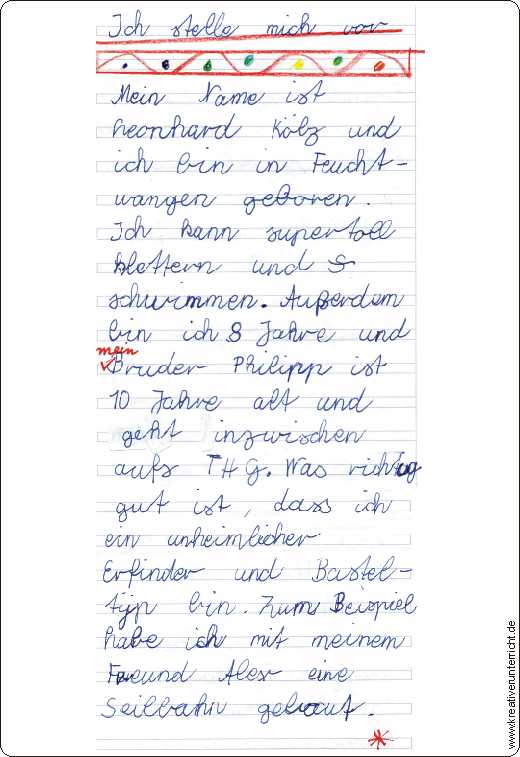 Ich stelle mich vor
Mein Name ist
Leonhard Kölz und
ich bin in Feucht-
wangen geboren.
Ich kann supertoll
klettern und S
schwimmen. Außerdem
bin ich 8 Jahre und
mein
Bruder Philipp ist
10 Jahre alt und
geht inzwischen
aufs THG. Was richtig
gut ist, dass ich
ein unheimlicher
Erfinder und Bastel-
typ bin. Zum Beispiel
habe ich mit meinem
Freund Alex eine
Seilbahn gebaut.
*
www.kreativerunterricht.de